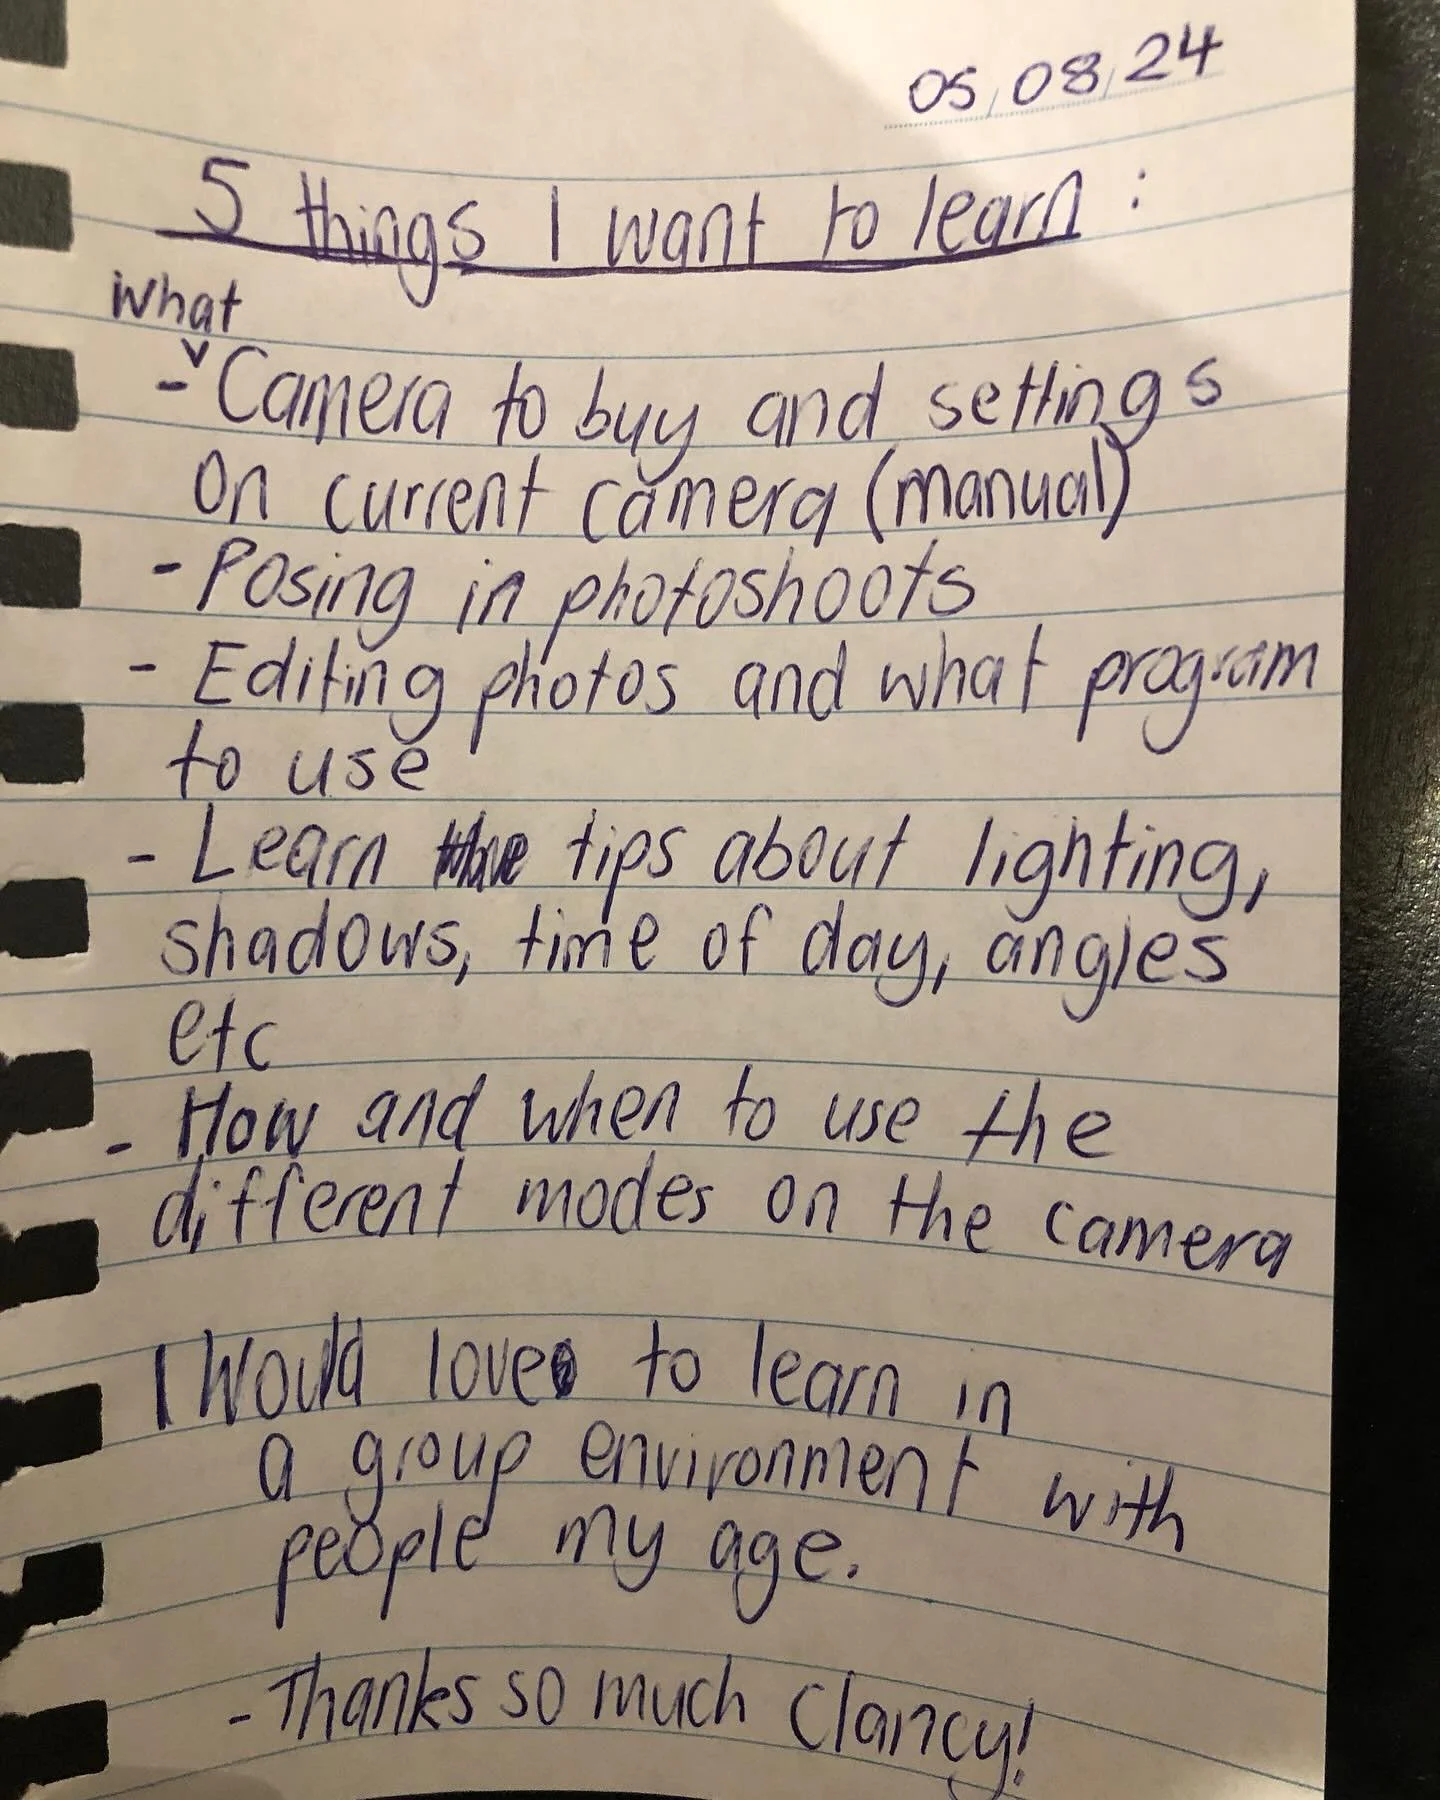 05/08/24
5 things I want to learn:
what
- Camera to buy and settings
on current camera (manual)
- Posing in photoshoots
- Editing photos and what program
to use
- Learn tips about lighting,
shadows, time of day, angles
etc
- How and when to use the
different modes on the camera
I would love to learn in
a group environment with
people my age.
- Thanks so much Clancy!